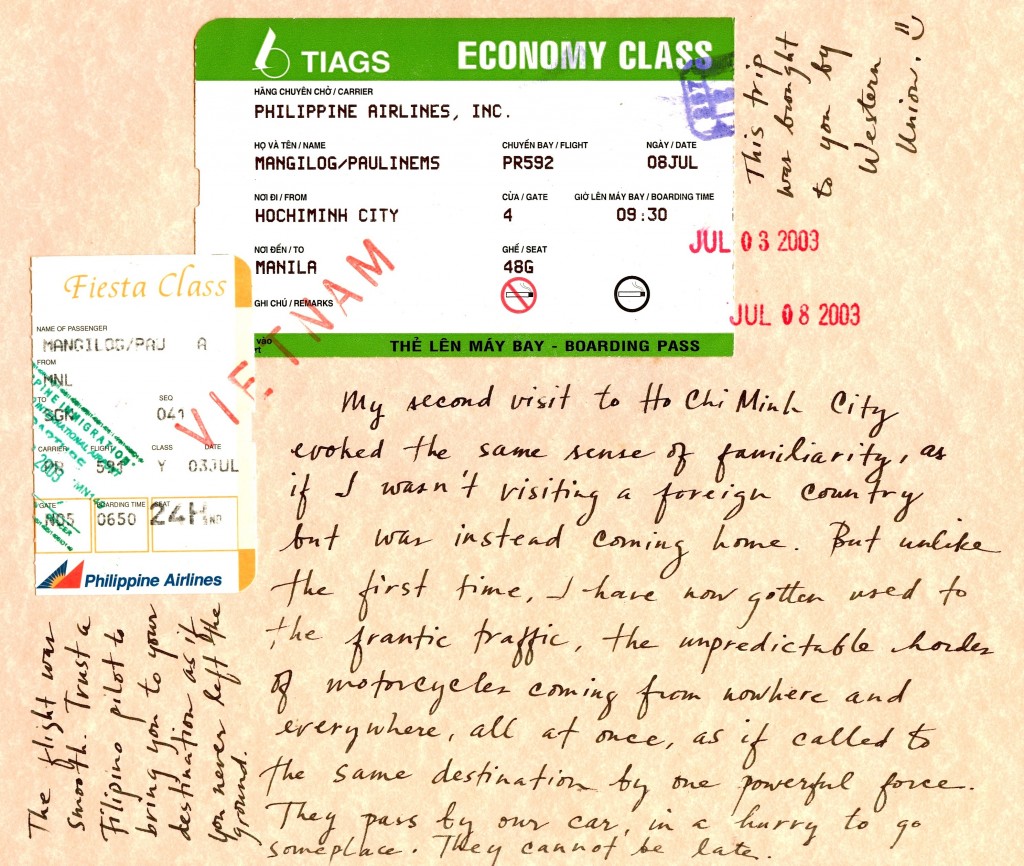 TIAGS ECONOMY CLASS
HÃNG CHUYÊN CHỞ / CARRIER
PHILIPPINE AIRLINES, INC.
HỌ VÀ TÊN / NAME CHUYẾN BAY / FLIGHT NGÀY / DATE
MANGILOG/PAULINEMS PR592 08JUL
NƠI ĐI / FROM CỬA / GATE GIỜ LÊN MÁY BAY / BOARDING TIME
HOCHIMINH CITY 4 09:30
NƠI ĐẾN / TO GHẾ / SEAT
MANILA 48G
GHI CHÚ / REMARKS
THẺ LÊN MÁY BAY - BOARDING PASS
This trip
was brought
to you by
Western
Union.
JUL 03 2003
JUL 08 2003
VIETNAM
Fiesta Class
NAME OF PASSENGER
MANGILOG/PAU A
FROM
MNL
TO SEQ
SGN 041
CARRIER FLIGHT CLASS DATE
PR 591 Y 03JUL
GATE BOARDING TIME SEAT
N05 0650 24H
IMMIGRATION
2003
Philippine Airlines
My second visit to Ho Chi Minh City
evoked the same sense of familiarity, as
if I wasn't visiting a foreign country
but was instead coming home. But unlike
the first time, I have now gotten used to
the frantic traffic, the unpredictable hordes
of motorcycles coming from nowhere and
everywhere, all at once, as if called to
the same destination by one powerful force.
They pass by our car, in a hurry to go
someplace. They cannot be late.
The flight was
smooth. Trust a
Filipino pilot to
bring you to your
destination as if
you never left the
ground.